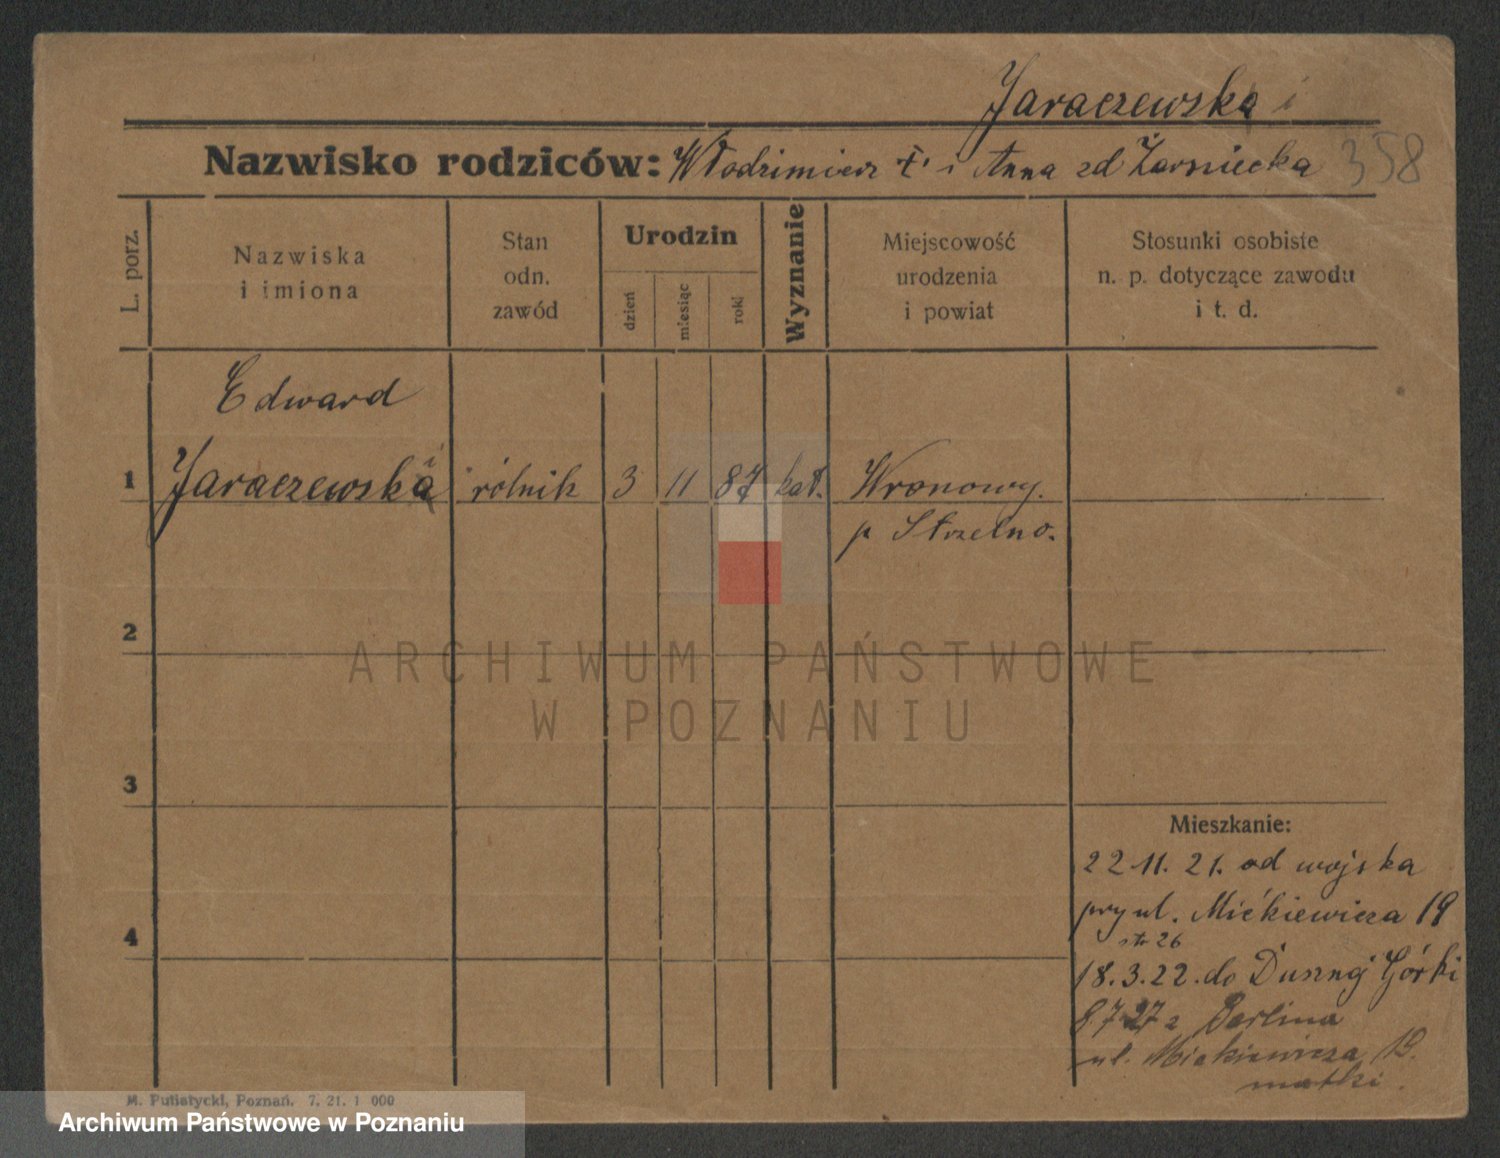 Jaraczewski
Nazwisko rodziców: Włodzimierz † i Anna zd Żerniecka 358
L. porz.
Nazwiska
i imiona
Stan
odn.
zawód
Urodzin
dzień
miesiąc
rok
Wyznanie
Miejscowość
urodzenia
i powiat
Stosunki osobiste
n. p. dotyczące zawodu
i t. d.
Edward
1 Jaraczewski rólnik 3 11 87 kat. Wronowy.
p Strzelno.
2
ARCHIWUM PAŃSTWOWE
W POZNANIU
3
Mieszkanie:
22 11. 21. od wojska
przy ul. Mićkiewicza 19
str 26
4
18.3.22. do Górki
8 7 27 z Berlina
ul. Mickiewicza 19.
matki.
M. Putiatycki, Poznań. 7. 21. 1 000
Archiwum Państwowe w Poznaniu